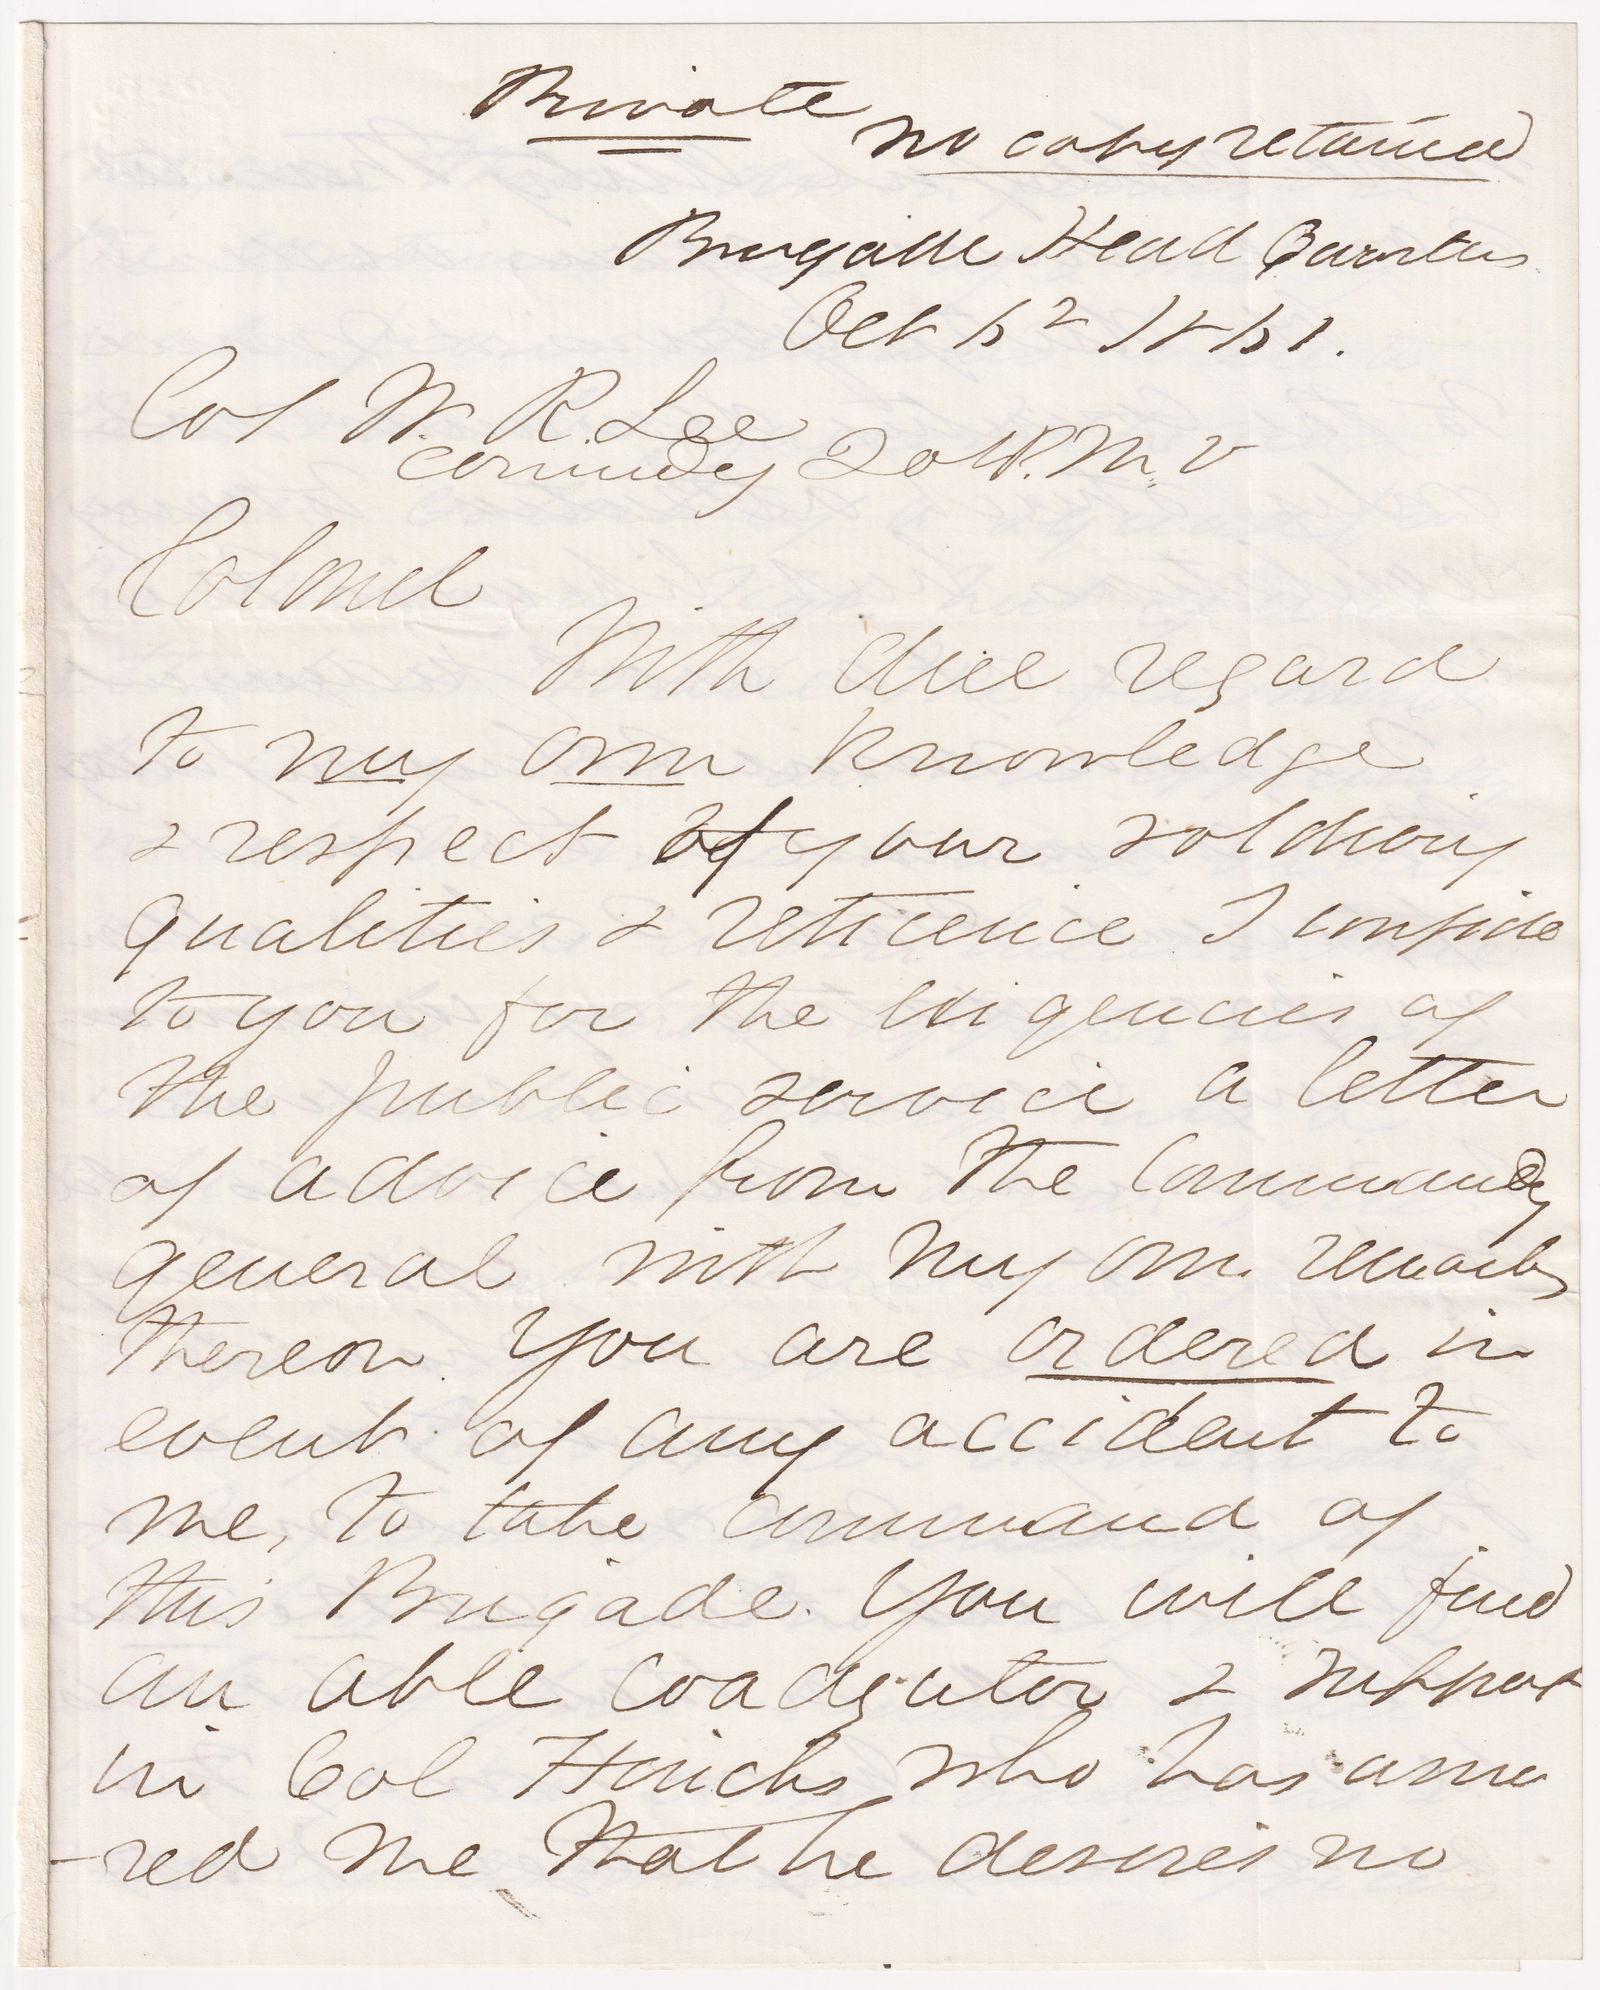 Private
no copy retained
Brigade Head Quarters
Oct 62 1861.
Col W. R. Lee
commdg 20 R. M. V
Colonel
With due regard
to my own knowledge
& respect of your soldierly
qualities & reticence I confide
to you for the exigencies of
the public service a letter
of advice from the Commandg
general with my own remarks
thereon. You are ordered in
event of any accident to
me, to take command of
this Brigade. You will find
an able coadjutor & support
in Col Hincks who has assu
-red me that he desires no